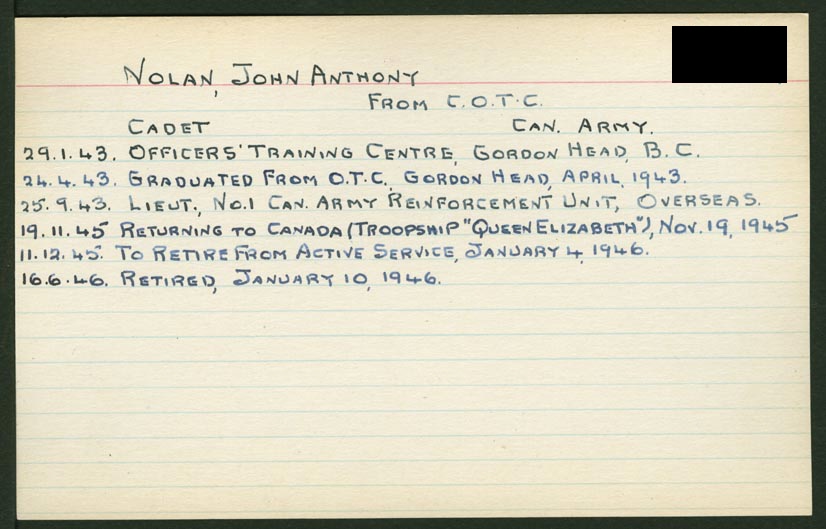 NOLAN, JOHN ANTHONY
FROM C.O.T.C.
CADET CAN. ARMY.
29.1.43. OFFICERS' TRAINING CENTRE, GORDON HEAD, B.C.
24.4.43. GRADUATED FROM O.T.C., GORDON HEAD, APRIL, 1943.
25.9.43. LIEUT., NO.1 CAN. ARMY REINFORCEMENT UNIT, OVERSEAS.
19.11.45 RETURNING TO CANADA (TROOPSHIP "QUEEN ELIZABETH"), NOV. 19, 1945
11.12.45. TO RETIRE FROM ACTIVE SERVICE, JANUARY 4, 1946.
16.6.46. RETIRED, JANUARY 10, 1946.